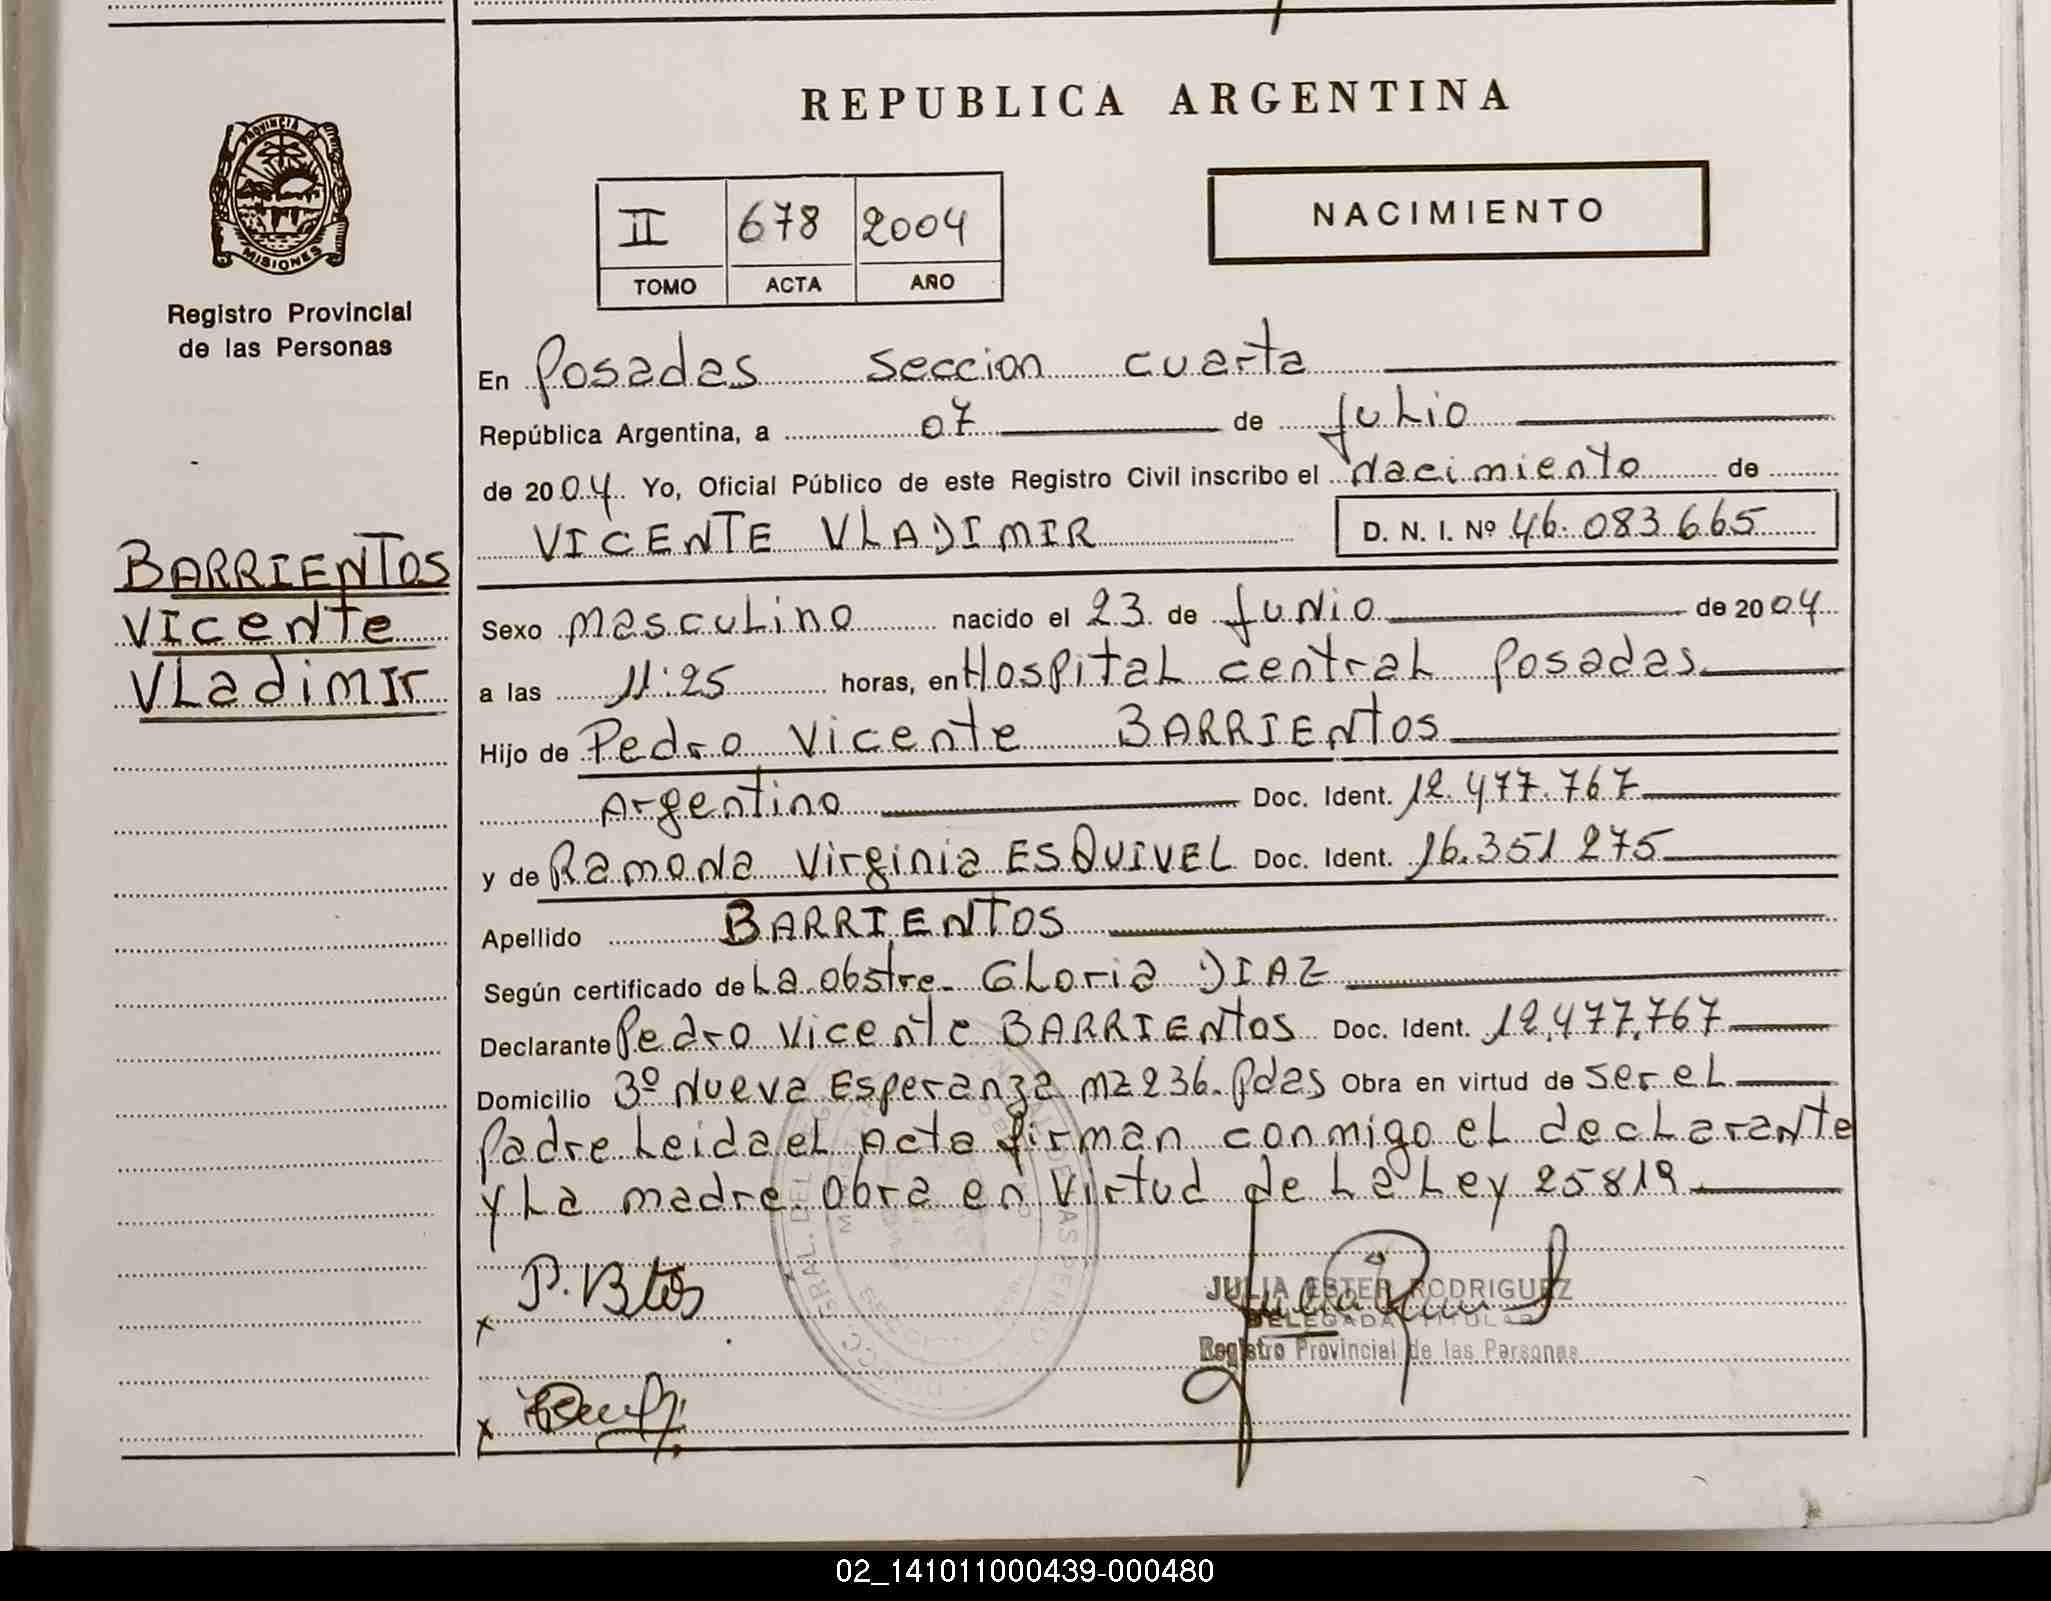 REPUBLICA ARGENTINA
PROVINCIA DE
MISIONES
Registro Provincial
de las Personas
II 678 2004
TOMO ACTA AÑO
NACIMIENTO
En Posadas seccion cuarta
República Argentina, a 07 de Julio
de 2004. Yo, Oficial Público de este Registro Civil inscribo el nacimiento de
VICENTE VLADIMIR D. N. I. Nº 46.083.665
BARRIENTOS
Vicente
Vladimir
Sexo masculino nacido el 23 de Junio de 2004
a las 11:25 horas, en Hospital central Posadas
Hijo de Pedro Vicente BARRIENTOS
Argentino Doc. Ident. 12.477.767
y de Ramona Virginia ESQUIVEL Doc. Ident. 16.351.275
Apellido BARRIENTOS
Según certificado de La obstre. Gloria DIAZ
Declarante Pedro Vicente BARRIENTOS Doc. Ident. 12.477.767
Domicilio 3º Nueva Esperanza mz 236. Pdas Obra en virtud de ser el
Padre Leida el Acta firman conmigo el declarante
y La madre. Obra en Virtud de La Ley 25819
P. Btos
JULIA ESTER RODRIGUEZ
DELEGADA TITULAR
Registro Provincial de las Personas
x
x
02_141011000439-000480